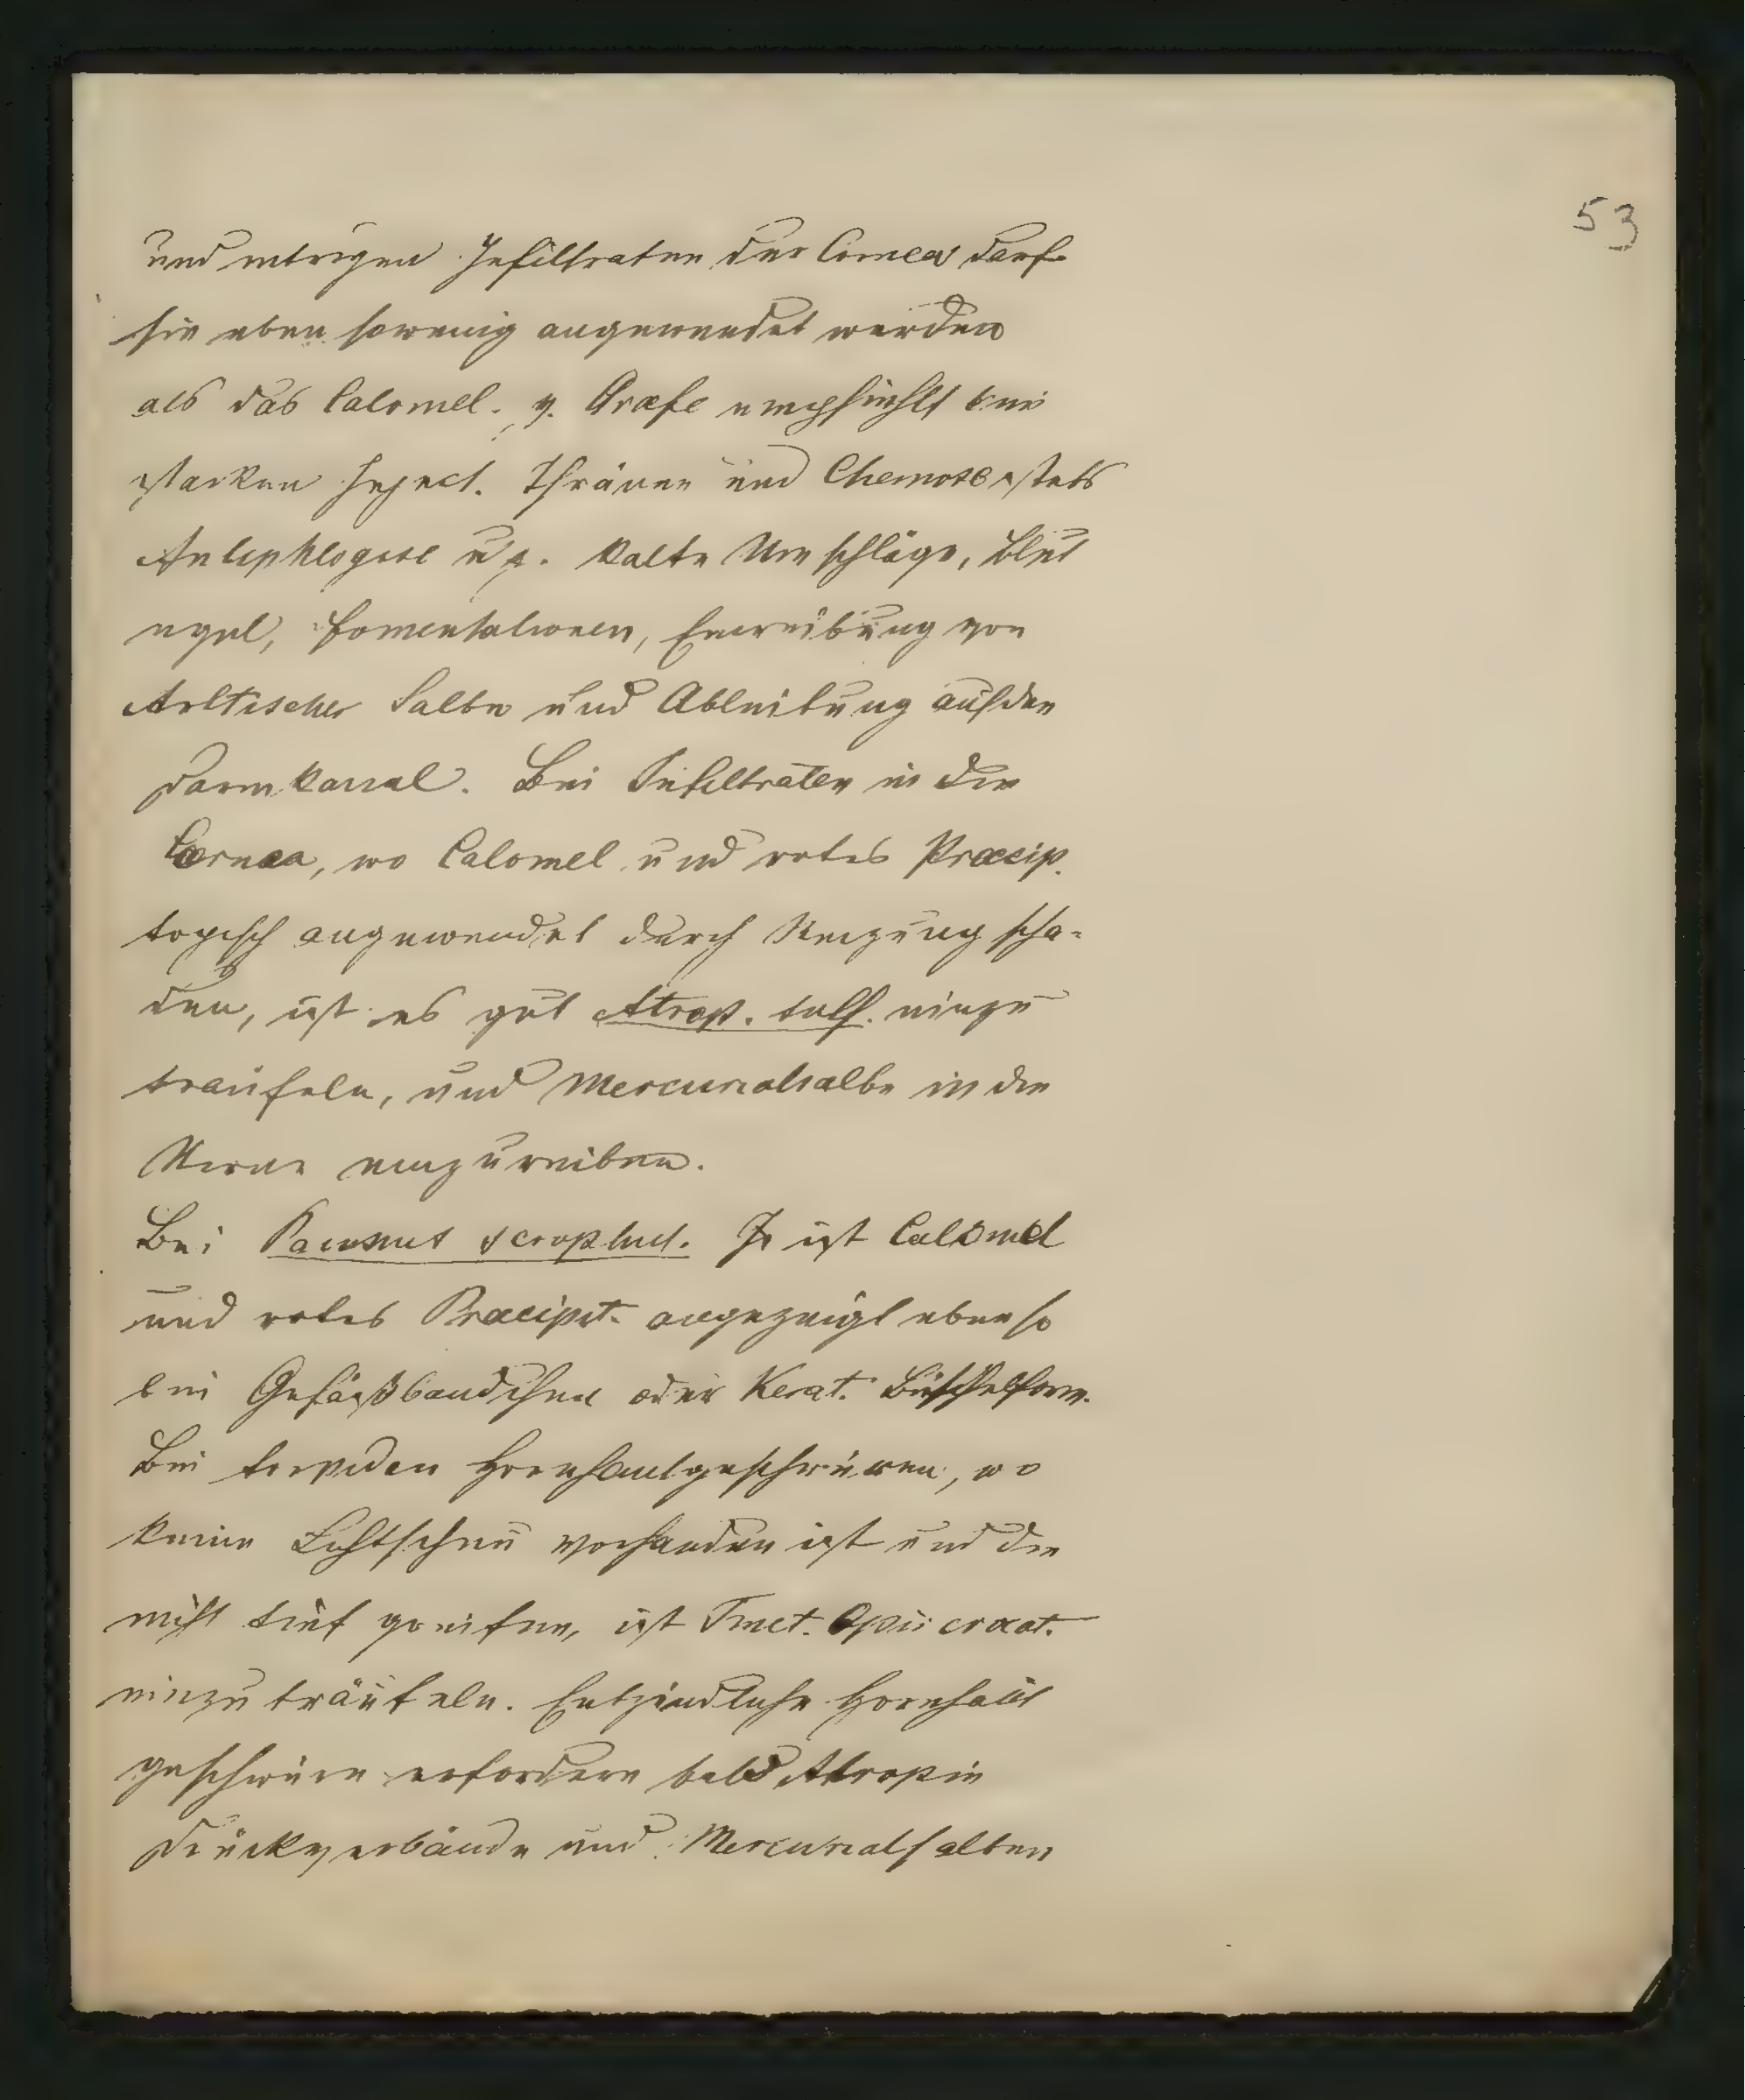 53
und eitrigen Infiltraten der Cornea darf
sie eben sowenig angewendet werden
als das Calomel. v. Græfe empfiehlt bei
starken Inject. Thränen und Chemose stets
Antiphlogose u z. kalte Umschläge, Blut
egel, Fomentationen, Einreibung von
Arltischer Salbe und Ableitung auf den
Darmkanal. Bei Infiltraten in die
Cornea, wo Calomel und rotes Præcip.
topisch angewendet durch Reizung scha-
den, ist es gut Atrop. sulf. einzu
träufeln, und Mercurialsalbe in die
Stirne einzureiben.
Bei Pannus scrophul. ist Calomel
und rotes Præcipit. angezeigt eben so
bei Gefäßbändchen oder Kerat. Büschelform.
Bei torpiden Hornhautgeschwüren, wo
keine Lichtscheu vorhanden ist und die
nicht tief greifen, ist Tinct. Opii crocat.
einzuträufeln. Entzündliche Hornhaut
geschwüre erfordern bald Atropin
Druckverbände und Mercurialsalben